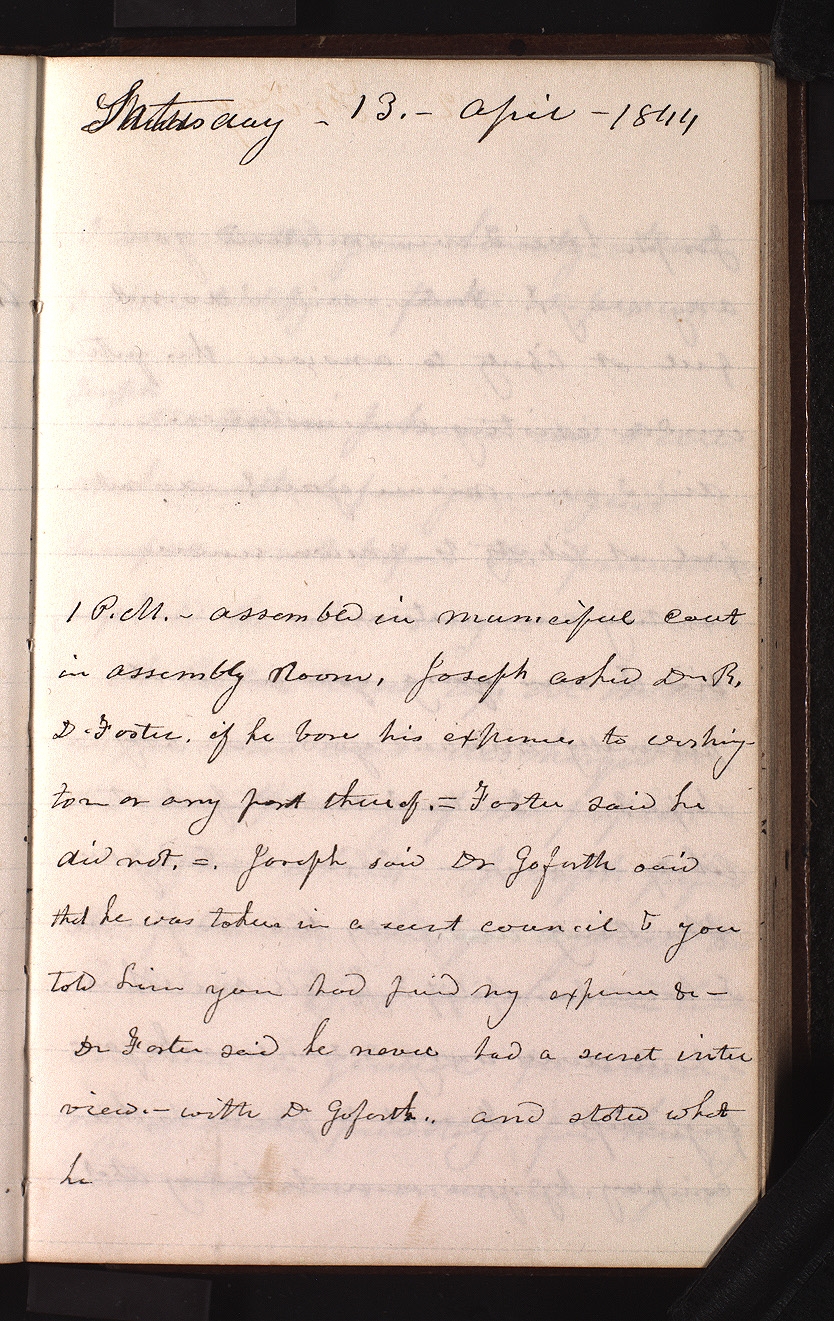 Saturday - 13. - April - 1844
1 P.M. - assembled in municipal cout
in assembly Room, Joseph asked Dr R.
D. Foster. if he bore his expenses to washing-
ton or any part thereof. = Foster said he
did not. =. Joseph said Dr Goforth said
that he was taken in a secret council & you
told him you had paid my expense &c -
Dr Foster said he never had a secret inter
view - with Dr Goforth.. and stated what
he